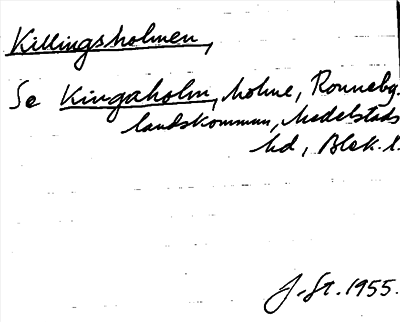 Killingsholmen,
Se Kingaholm, holme, Ronneby
landskommun, Medelstads
hd, Blek. l.
J. St. 1955.